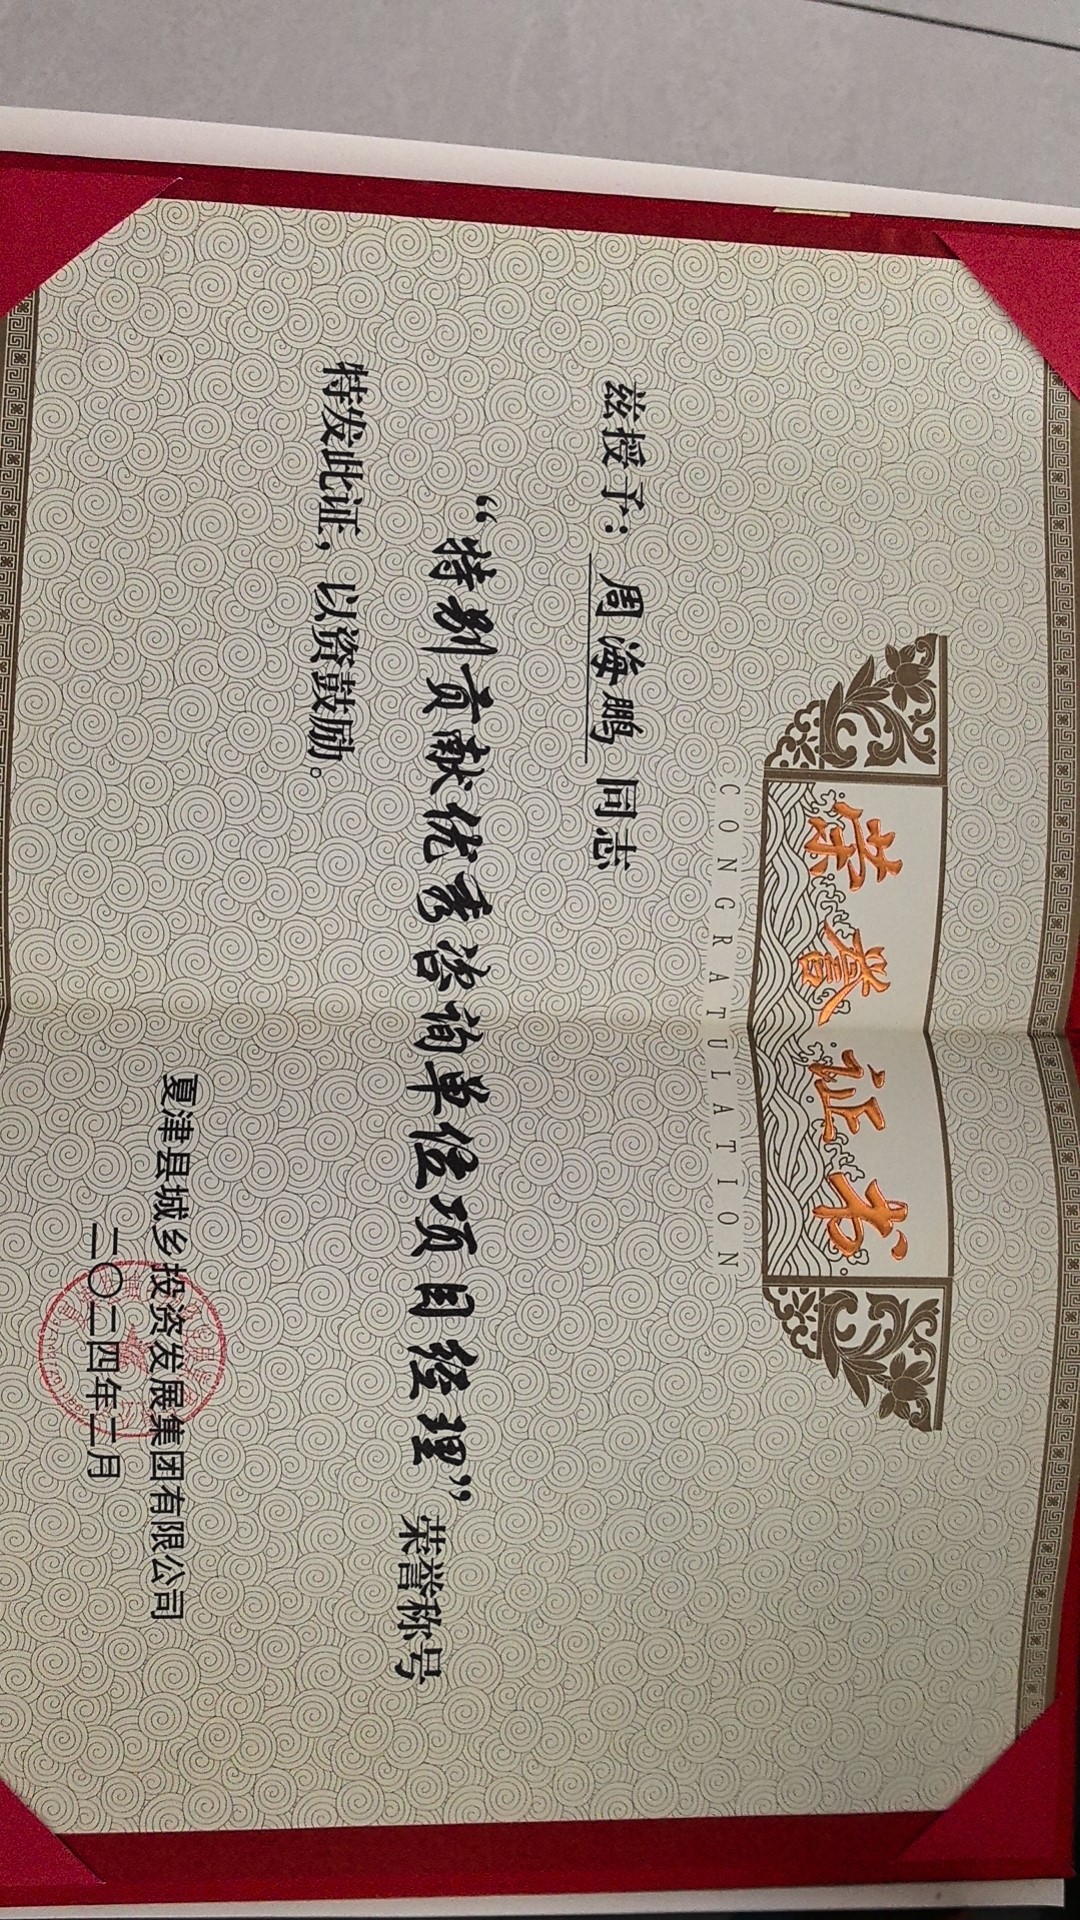 荣誉证书
CONGRATULATION
兹授予：周海鹏 同志
“特别贡献优秀咨询单位项目经理”荣誉称号
特发此证，以资鼓励。
夏津县城乡投资发展集团有限公司
二〇二四年二月